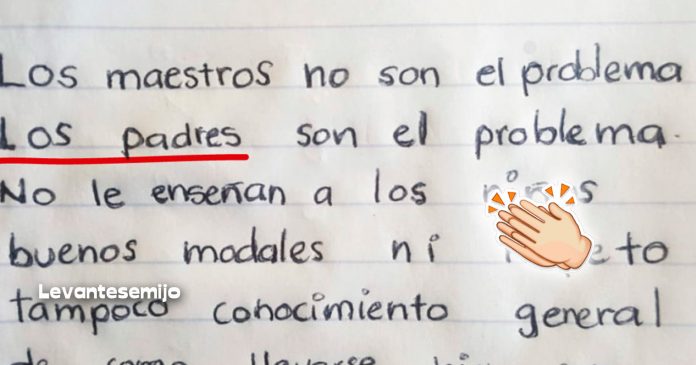 Los maestros no son el problema
Los padres son el problema.
No le enseñan a los niños
buenos modales ni
Levantesemijo
tampoco conocimiento general
de como llevarse